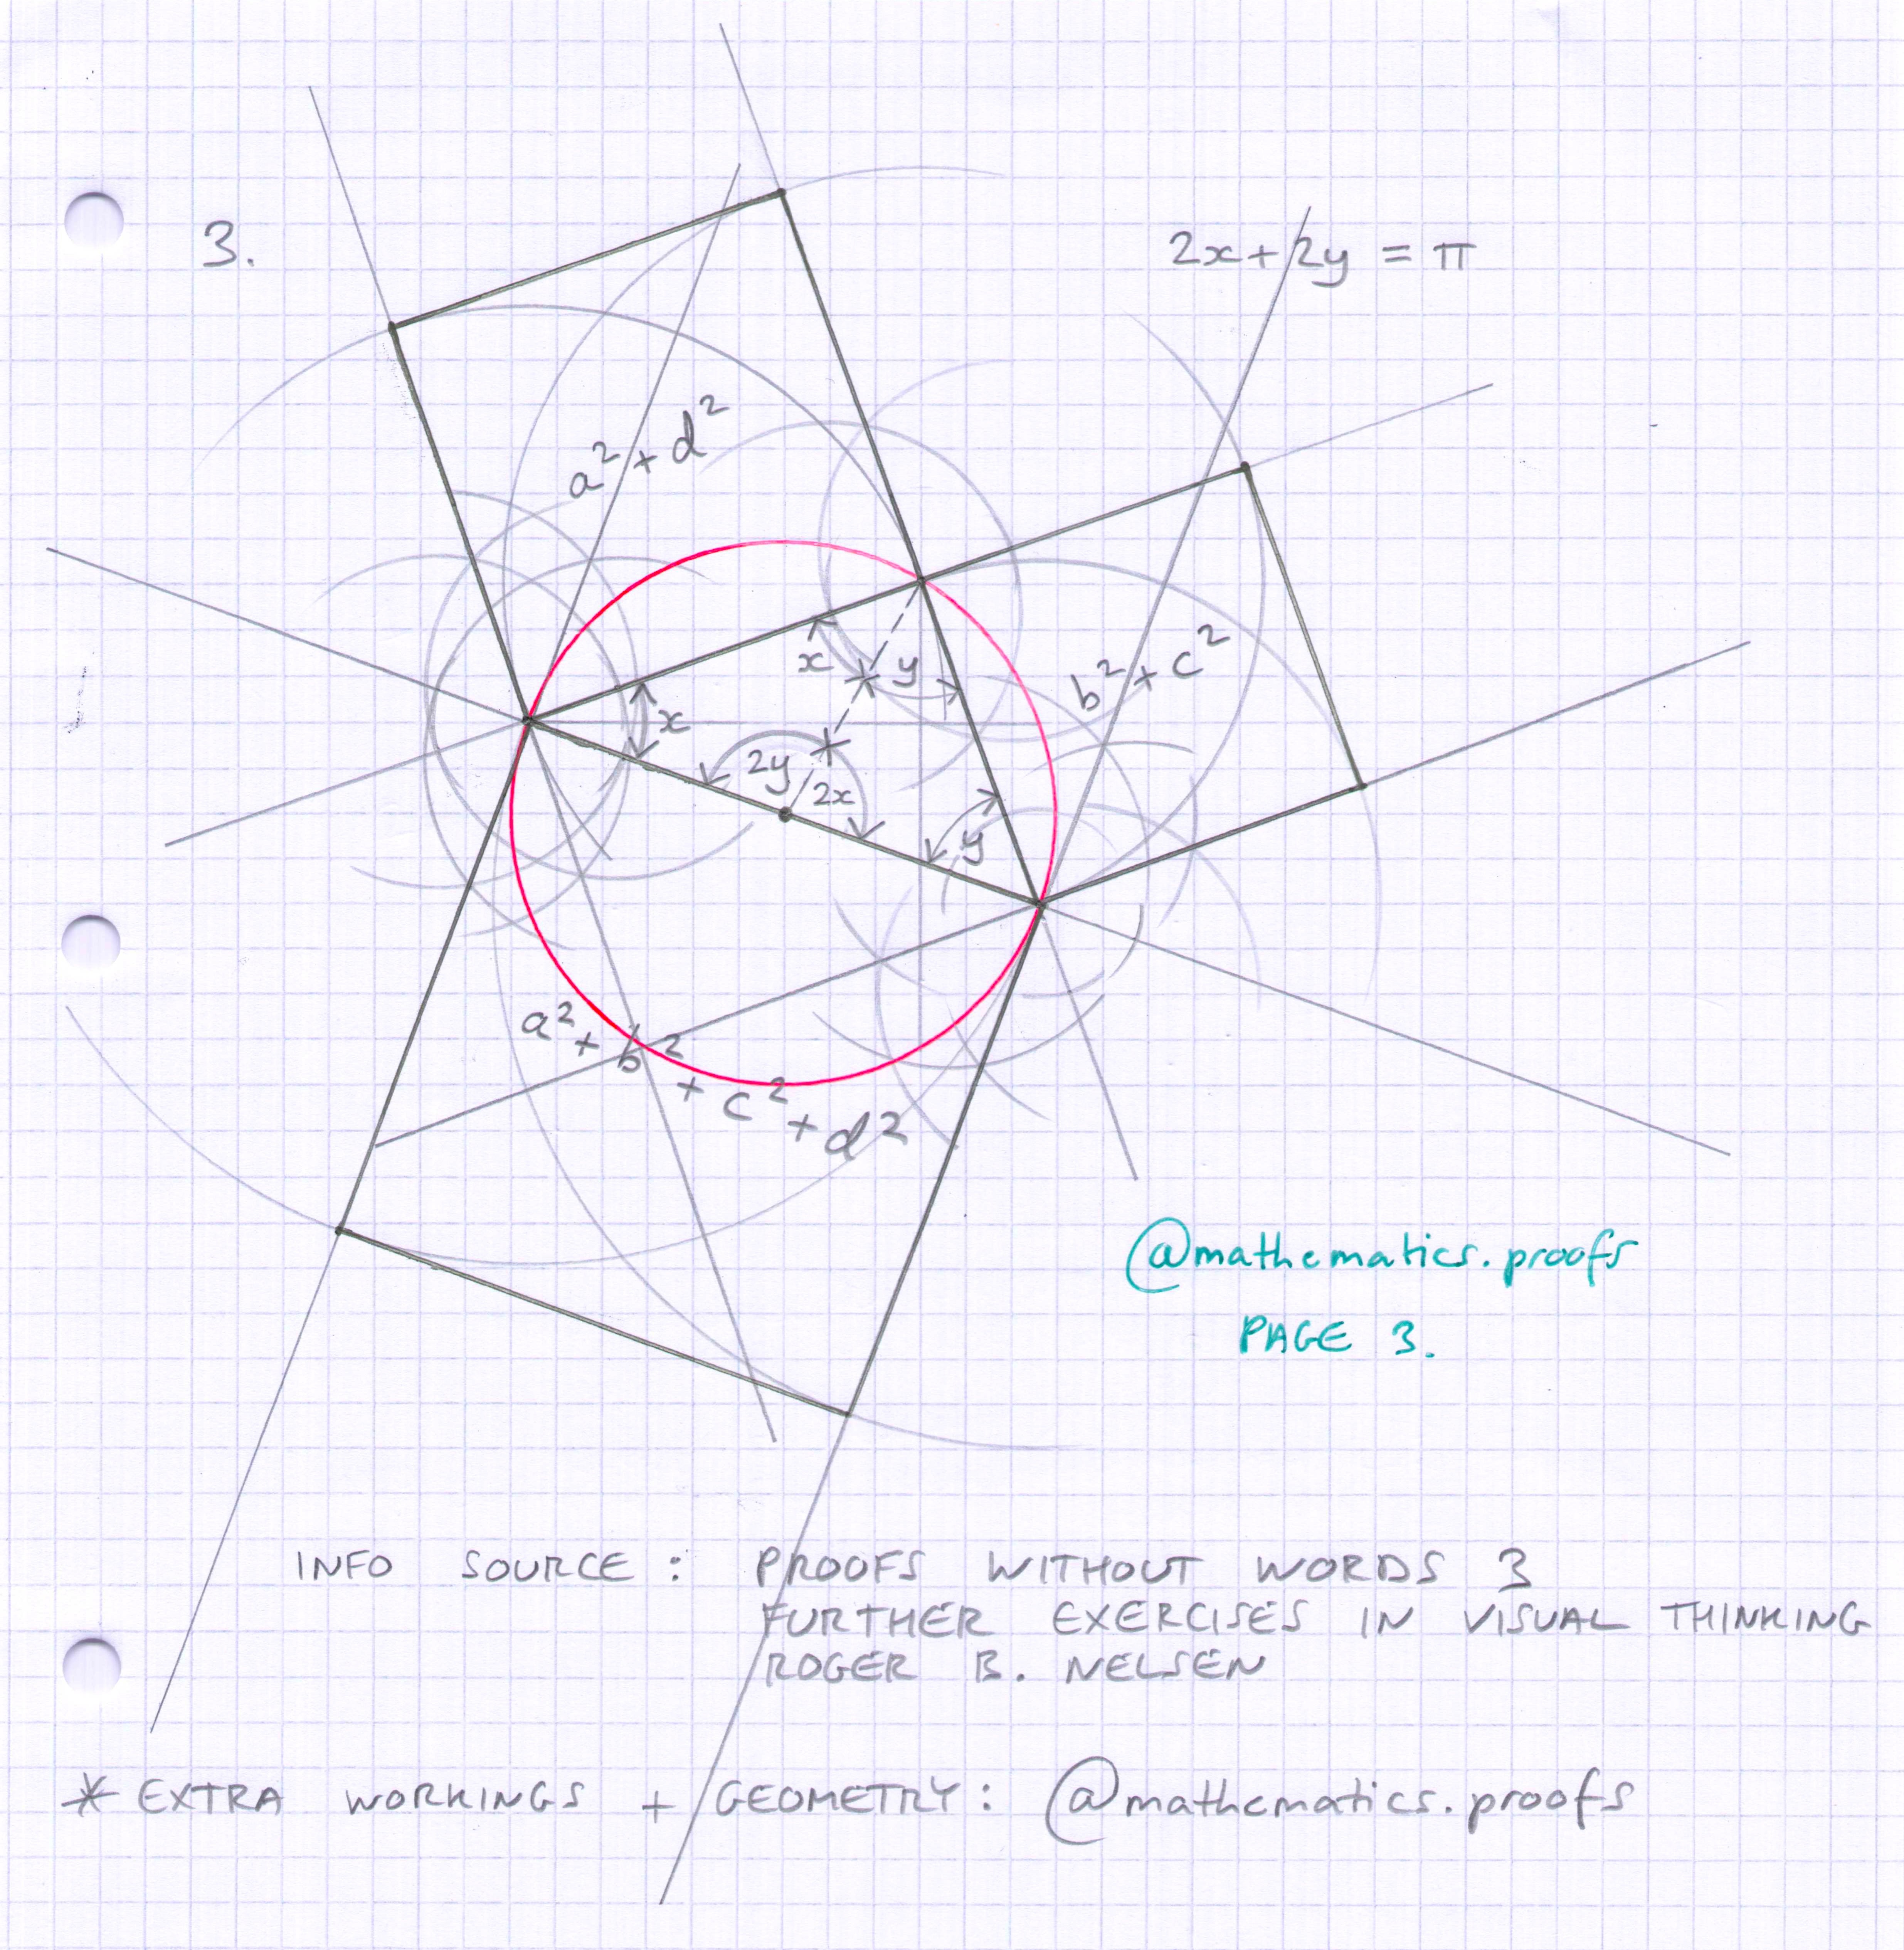 3.
2x + 2y = π
a² + d²
b² + c²
x
y
x
2y
2x
y
a² + b² + c² + d²
@mathematics.proofs
PAGE 3.
INFO SOURCE : PROOFS WITHOUT WORDS 3
FURTHER EXERCISES IN VISUAL THINKING
ROGER B. NELSEN
* EXTRA WORKINGS + GEOMETRY : @mathematics.proofs